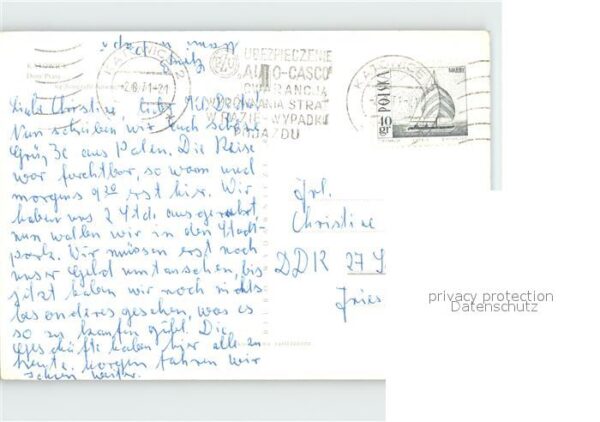 KATOWICE 2
-2.8.71-21
UBEZPIECZENIE
AUTO-CASCO
GWARANCJĄ
WYRÓWNANIA STRAT
W RAZIE WYPADKU
POJAZDU
POLSKA
40 gr
Liebe Christine, liebe
Nun schreiben wir Euch schöne
Grüße aus Polen. Die Reise
war furchtbar, so warm und
morgens 9 20 erst hier. Wir
haben uns 2 Std. ausgeruht,
nun wollen wir in den Stadt-
park. Wir müssen erst noch
unser Geld umtauschen, bis
jetzt haben wir noch nichts
besonderes gesehen, was es
so zu kaufen gibt. Die
Geschäfte haben hier alle zu
heute. Morgen fahren wir
schon weiter.
Frl.
Christine
DDR 27
Fries
privacy protection
Datenschutz